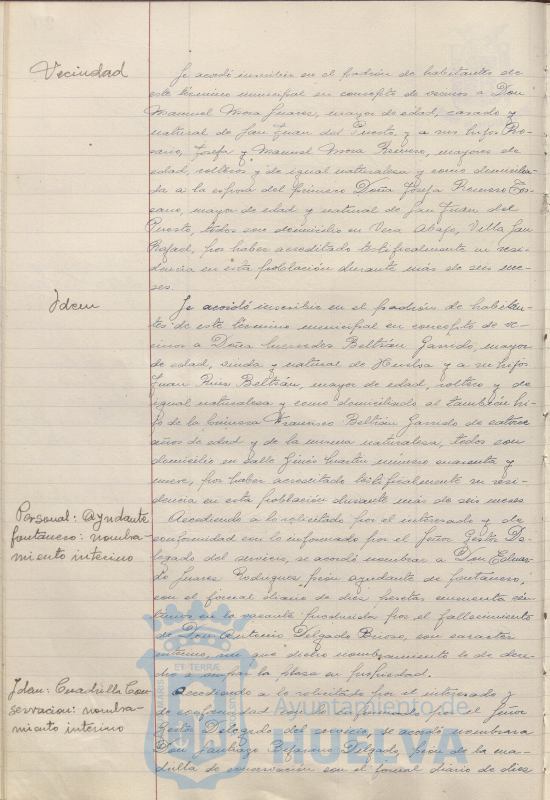 Vecindad
Se acordó inscribir en el padrón de habitantes de
este término municipal en concepto de vecinos a Don
Manuel Mora Suarez, mayor de edad, casado y
natural de San Juan del Puerto, y a sus hijos Ro-
sario, Josefa y Manuel Mora Romero, mayores de
edad, solteros y de igual naturaleza y como domicilia-
da a la esposa del primero Doña Josefa Romero
mayor de edad y natural de San Juan del
Puerto, todos con domicilio en Vera Abajo, Villa San
Rafael, por haber acreditado testificalmente su resi-
dencia en esta población durante más de seis me-
ses.
Idem
Se acordó inscribir en el padrón de habitan-
tes de este término municipal en concepto de ve-
cinos a Doña Mercedes Beltrán Garrido, mayor
de edad, viuda y natural de Huelva y a su hijo
Juan Ruiz Beltrán, mayor de edad, soltero y de
igual naturaleza y como domiciliado al también hi-
jo de la primera Francisco Beltrán Garrido de catorce
años de edad y de la misma naturaleza, todos con
domicilio en calle Ginés Martin número cuarenta y
nueve, por haber acreditado testificalmente su resi-
dencia en esta población durante más de seis meses
Personal: Ayudante
fontanero: nombra-
miento interino
Accediendo a lo solicitado por el interesado y de
conformidad con lo informado por el Señor Gestor De-
legado del servicio, se acordó nombrar a Don Eduar-
do Suarez Rodriguez peón ayudante de fontanero,
con el jornal diario de diez pesetas cincuenta cén-
timos en la vacante producida por el fallecimiento
de Don Antonio Delgado Brioso, con caracter
interino, sin que dicho nombramiento le dé dere-
cho a ocupar la plaza en propiedad.
Idem: Cuadrilla Con-
servacion: nombra-
miento interino
Accediendo a lo solicitado por el interesado y
de conformidad con lo informado por el Señor
Gestor Delegado del servicio, se acordó nombrar a
Don Santiago Bejarano Delgado, peón de la cua-
drilla de conservación con el jornal diario de diez
Ayuntamiento de
HUELVA